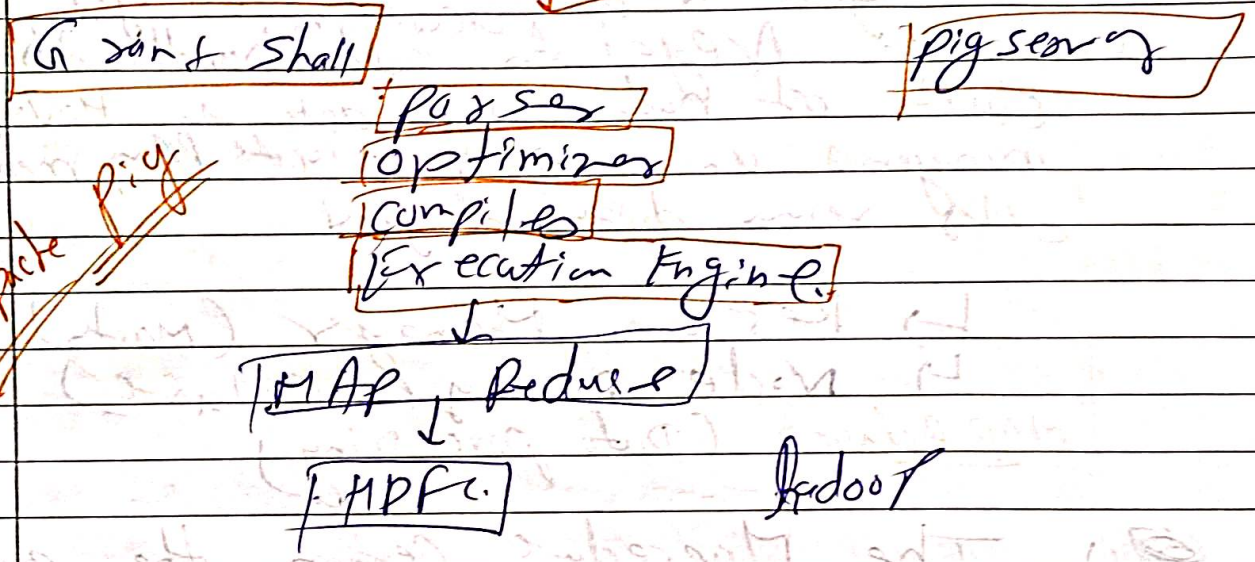 Grant Shall Pig server
Parser
Optimizer
Compiler
Execution Engine.
Pig
MAP Reduse
HDFC.
Hadoop